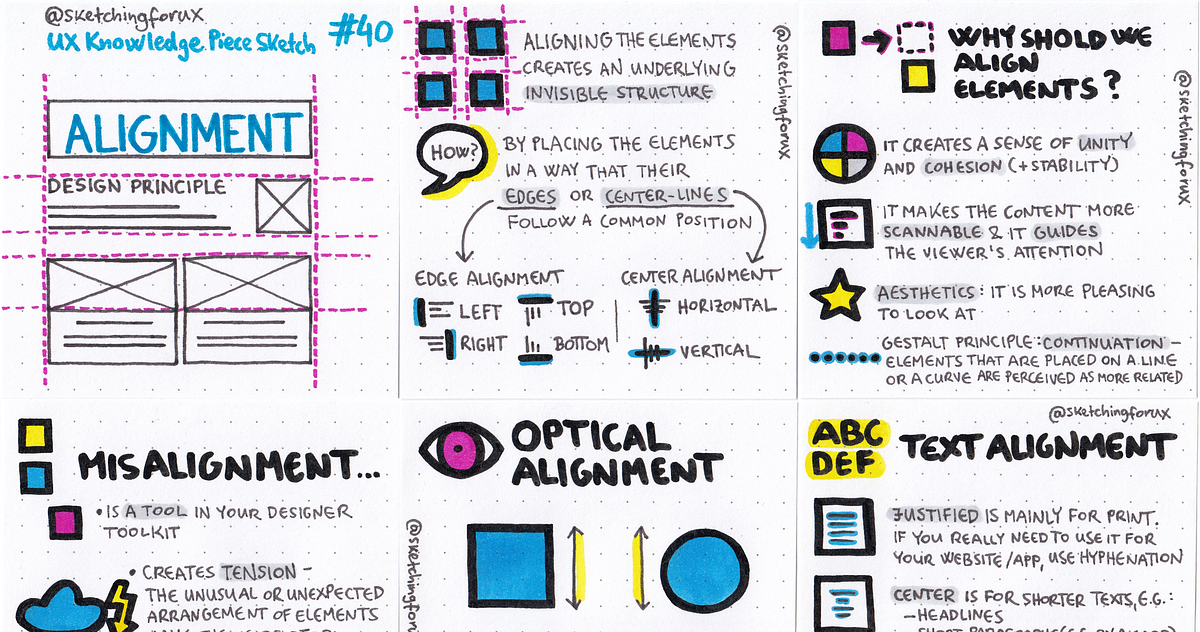 @sketchingforux
UX Knowledge Piece Sketch #40
ALIGNMENT
DESIGN PRINCIPLE
ALIGNING THE ELEMENTS
CREATES AN UNDERLYING
INVISIBLE STRUCTURE
@sketchingforux
HOW?
BY PLACING THE ELEMENTS
IN A WAY THAT THEIR
EDGES OR CENTER-LINES
FOLLOW A COMMON POSITION
EDGE ALIGNMENT
LEFT
TOP
RIGHT
BOTTOM
CENTER ALIGNMENT
HORIZONTAL
VERTICAL
WHY SHOLD WE
ALIGN
ELEMENTS?
@sketchingforux
IT CREATES A SENSE OF UNITY
AND COHESION (+STABILITY)
IT MAKES THE CONTENT MORE
SCANNABLE & IT GUIDES
THE VIEWER'S ATTENTION
AESTHETICS: IT IS MORE PLEASING
TO LOOK AT
GESTALT PRINCIPLE: CONTINUATION -
ELEMENTS THAT ARE PLACED ON A LINE
OR A CURVE ARE PERCEIVED AS MORE RELATED
MISALIGNMENT...
• IS A TOOL IN YOUR DESIGNER
TOOLKIT
• CREATES TENSION -
THE UNUSUAL OR UNEXPECTED
ARRANGEMENT OF ELEMENTS
OPTICAL
ALIGNMENT
@sketchingforux
@sketchingforux
ABC
DEF
TEXT ALIGNMENT
JUSTIFIED IS MAINLY FOR PRINT.
IF YOU REALLY NEED TO USE IT FOR
YOUR WEBSITE/APP, USE HYPHENATION
CENTER IS FOR SHORTER TEXTS, E.G.:
- HEADLINES